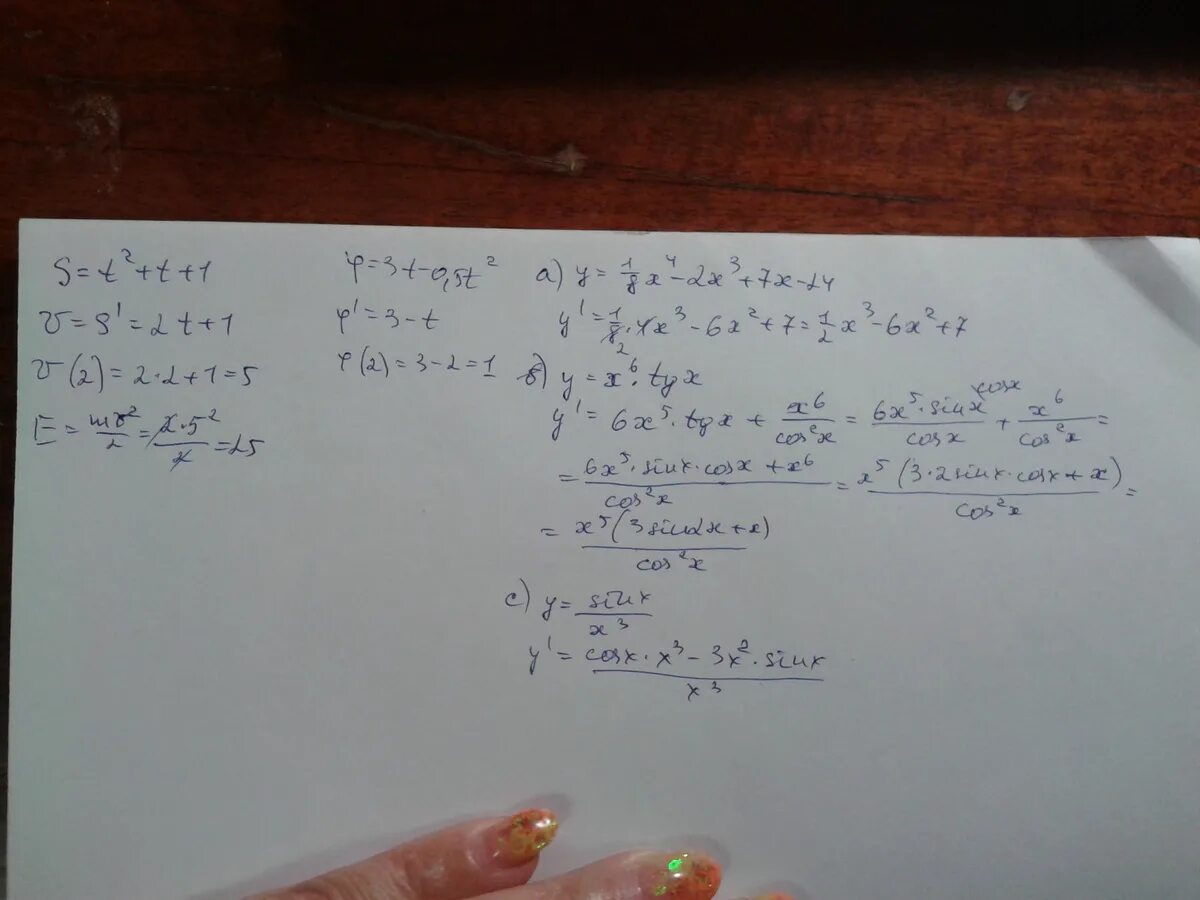 S = t² + t + 1
v = S' = 2t + 1
v(2) = 2·2 + 1 = 5
E = mv²/2 = 2·5²/2 = 25
φ = 3t - 0,5t²
φ' = 3 - t
φ(2) = 3 - 2 = 1
a) y = 1/8 x⁴ - 2x³ + 7x - 24
y' = 1/8 · 4x³ - 6x² + 7 = 1/2 x³ - 6x² + 7
2
б) y = x⁶ · tgx
y' = 6x⁵ · tgx + x⁶/cos²x = 6x⁵ · sinx cosx/cosx + x⁶/cos²x =
= (6x⁵ · sinx · cosx + x⁶)/cos²x = x⁵(3·2sinx·cosx + x)/cos²x =
= x⁵(3sin2x + x)/cos²x
c) y = sinx/x³
y' = (cosx · x³ - 3x² · sinx)/x³